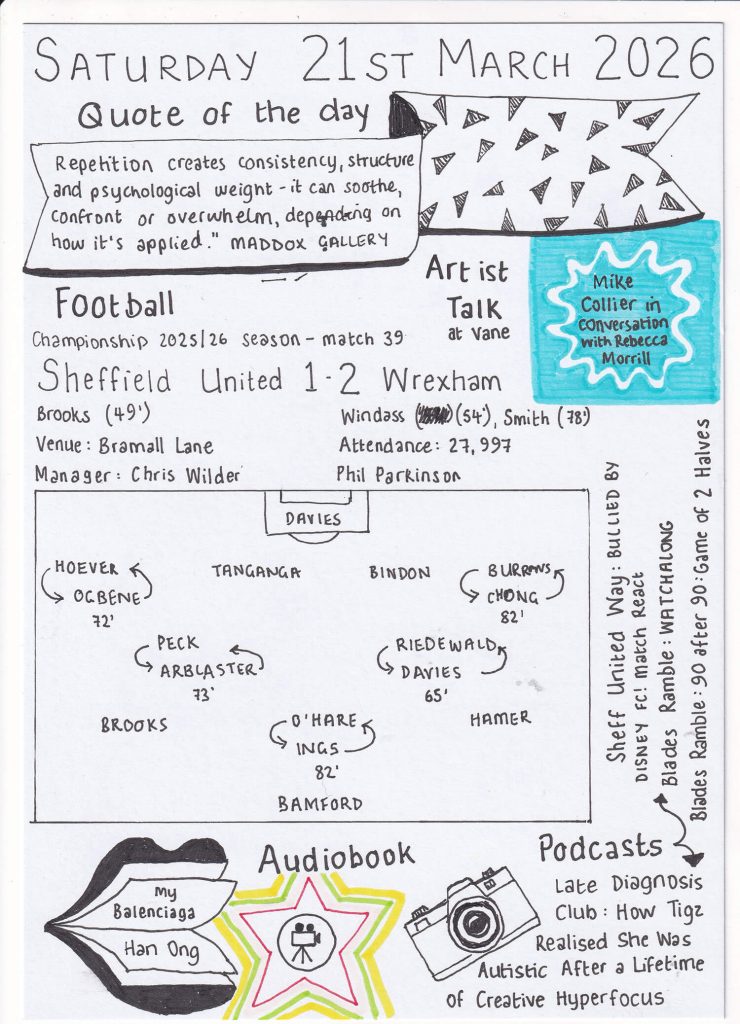 SATURDAY 21ST MARCH 2026
Quote of the day
Repetition creates consistency, structure
and psychological weight - it can soothe,
confront or overwhelm, depending on
how it's applied." MADDOX GALLERY
Artist
Talk
at Vane
Mike
Collier in
conversation
with Rebecca
Morrill
Football
Championship 2025/26 season - match 39
Sheffield United 1-2 Wrexham
Brooks (49')
Windass (54'), Smith (78')
Venue: Bramall Lane
Attendance: 27,997
Manager: Chris Wilder
Phil Parkinson
DAVIES
HOEVER
OGBENE
72'
TANGANGA
BINDON
BURROWS
CHONG
82'
PECK
ARBLASTER
73'
RIEDEWALD
DAVIES
65'
BROOKS
O'HARE
INGS
82'
HAMER
BAMFORD
Sheff United Way: BULLIED BY
DISNEY FC! Match React
Blades Ramble: WATCHALONG
Blades Ramble: 90 after 90: Game of 2 Halves
Audiobook
My
Balenciaga
Han Ong
Podcasts
Late Diagnosis
Club: How Tigz
Realised She Was
Autistic After a Lifetime
of Creative Hyperfocus